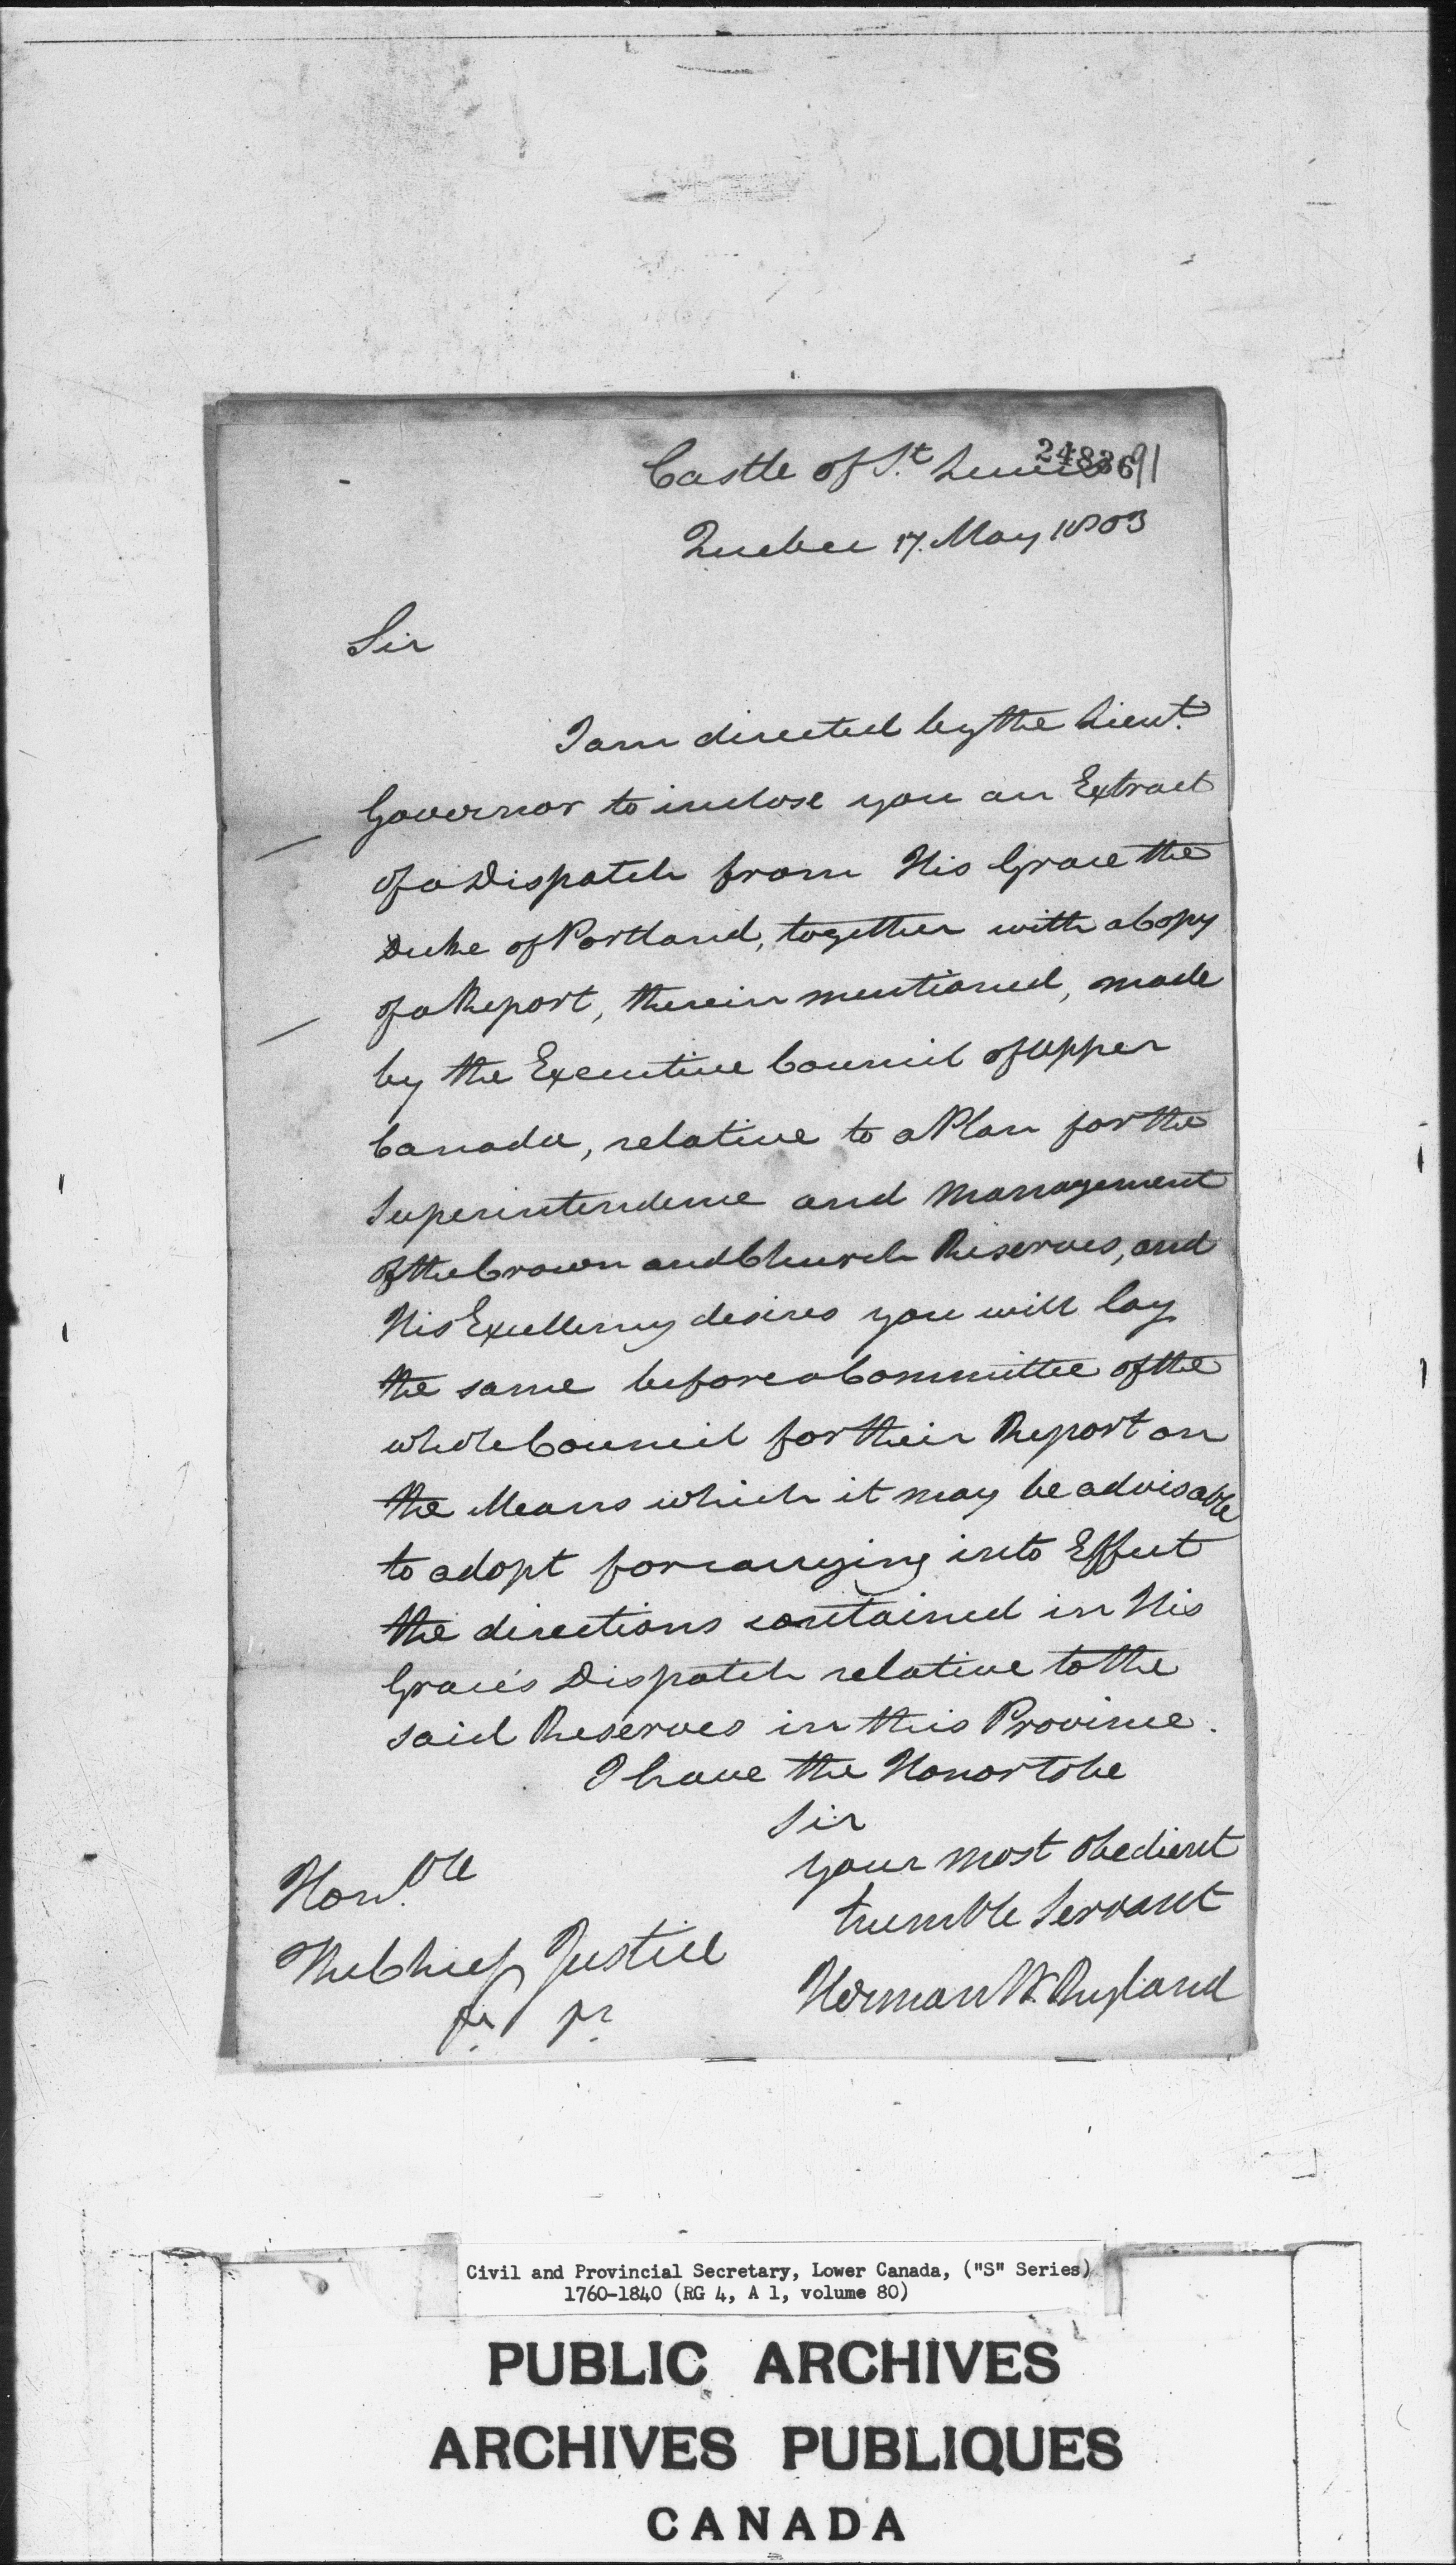 24836
91
Castle of St. Lewis
Quebec 17. May 1803
Sir
I am directed by the Lieut.
Governor to inclose you an Extract
of a Dispatch from His Grace the
Duke of Portland, together with a Copy
of a Report, therein mentioned, made
by the Executive Council of Upper
Canada, relative to a Plan for the
Superintendence and Management
of the Crown and Church Reserves, and
His Excellency desires you will lay
the same before a Committee of the
whole Council for their Report on
the Means which it may be advisable
to adopt for carrying into Effect
the directions contained in His
Grace's Dispatch relative to the
said Reserves in this Province.
I have the Honor to be
Sir
Your most obedient
humble Servant
Herman W. Ryland
Honble
The Chief Justice
Civil and Provincial Secretary, Lower Canada, ("S" Series)
1760-1840 (RG 4, A 1, volume 80)
PUBLIC ARCHIVES
ARCHIVES PUBLIQUES
CANADA